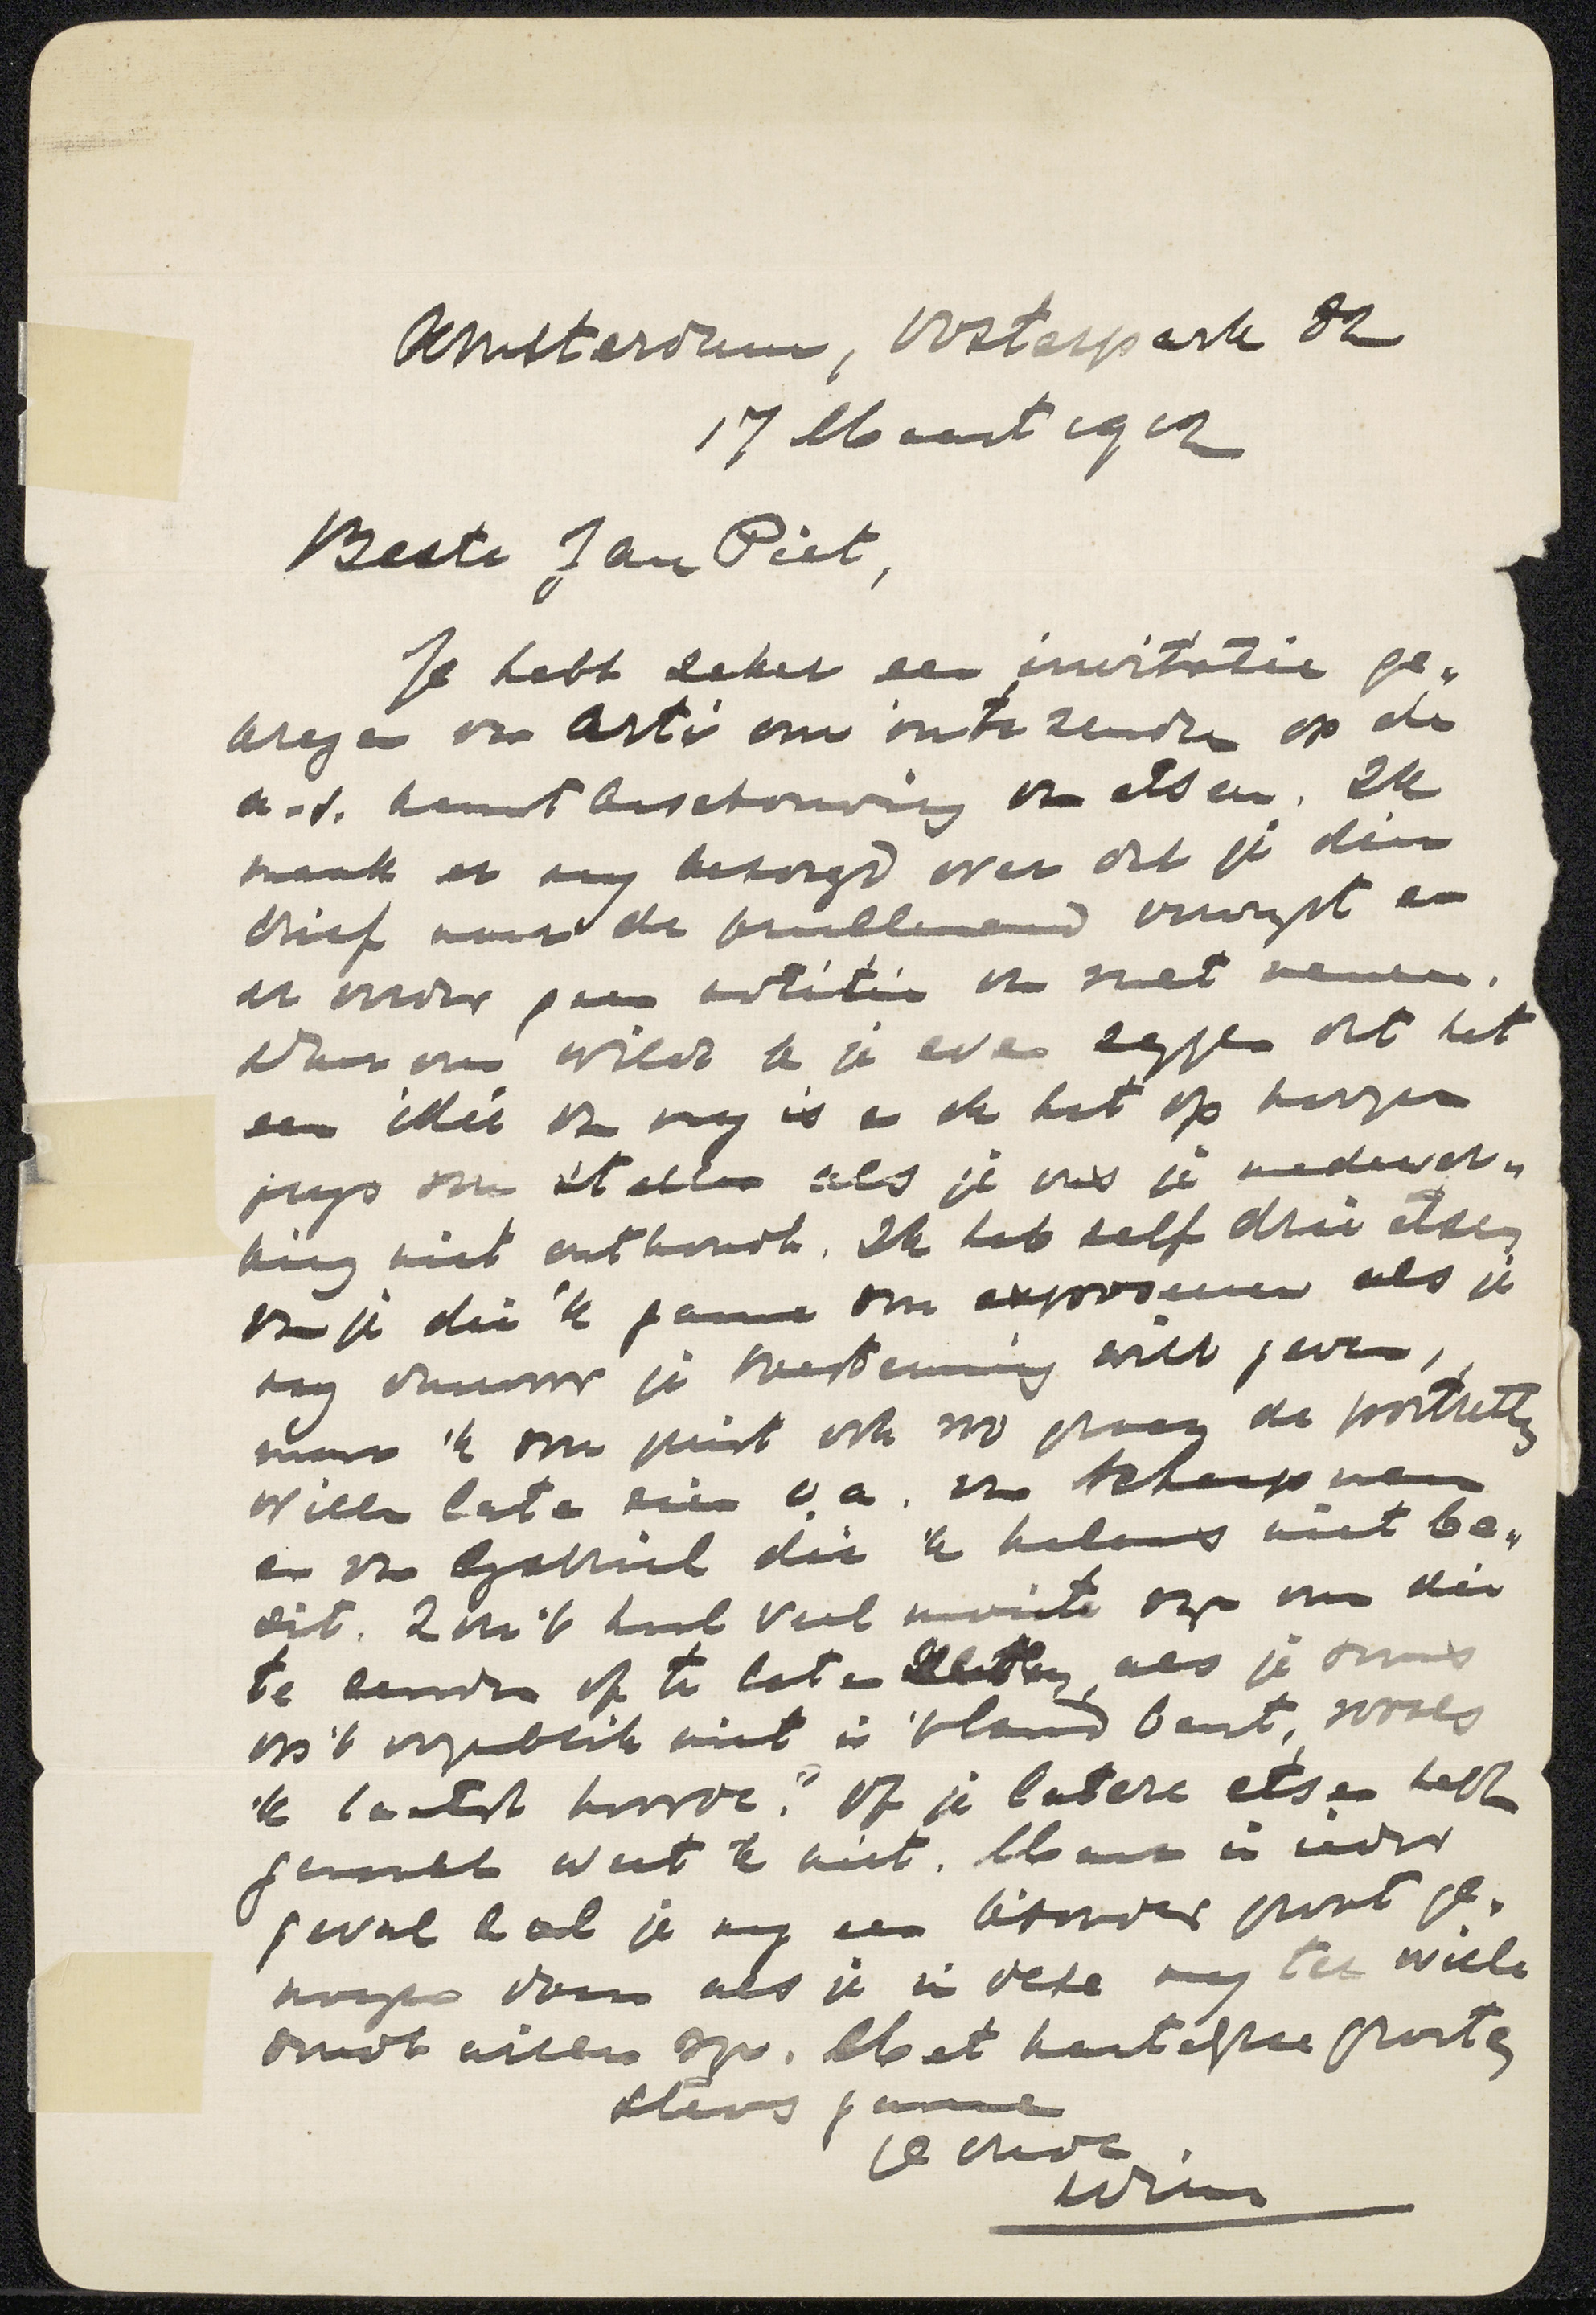 Amsterdam, Oosterpark 82
17 Maart 1912
Beste Jan Piet,
Je hebt zeker een invitatie ge„
kregen van Arti om in te zenden op de
a.s. kunstbeschouwing van etsen. Ik
maak er my bezorgd over dat je dien
brief naar de prullemand verwyst en
er verder geen notitie van zult nemen.
Daarom wilde ik je even zeggen dat het
een idee van my is en ik het op hoogen
prys zou stellen als je ons je medewer„
king niet onthoudt. Ik heb zelf drie etsen
van je die 'k gaarne zou exposeeren als je
my daarvoor je toestemming wilt geven,
maar 'k zou juist ook zoo graag de portretten
willen laten zien o.a. van Schaapman
en van Gabriel die 'k helaas niet be„
zit. Zou 't heel veel moeite zyn om die
te zenden of te laten zenden, als je soms
op 't oogenblik niet in 't land bent, zooals
'k laatst hoorde? Of je latere etsen hebt
gemaakt weet 'k niet. Maar in ieder
geval zal je my een byzonder groot ge„
noegen doen als je in deze my ter wille
zoudt willen zyn. Met hartelyke groeten
steeds gaarne
je oude
Wim